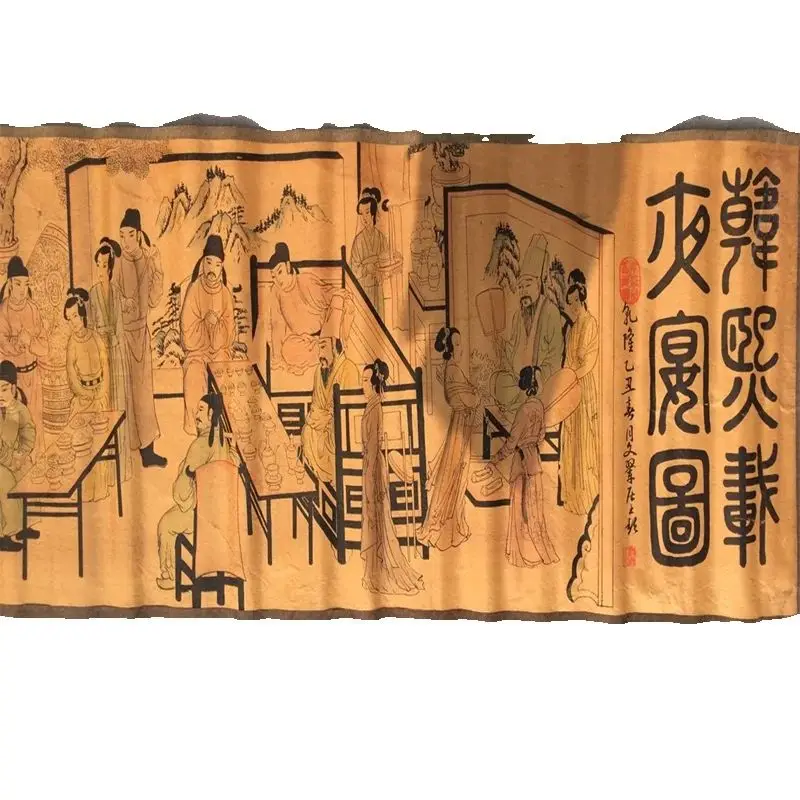 韓熙載
夜宴圖
乾隆乙丑春月文